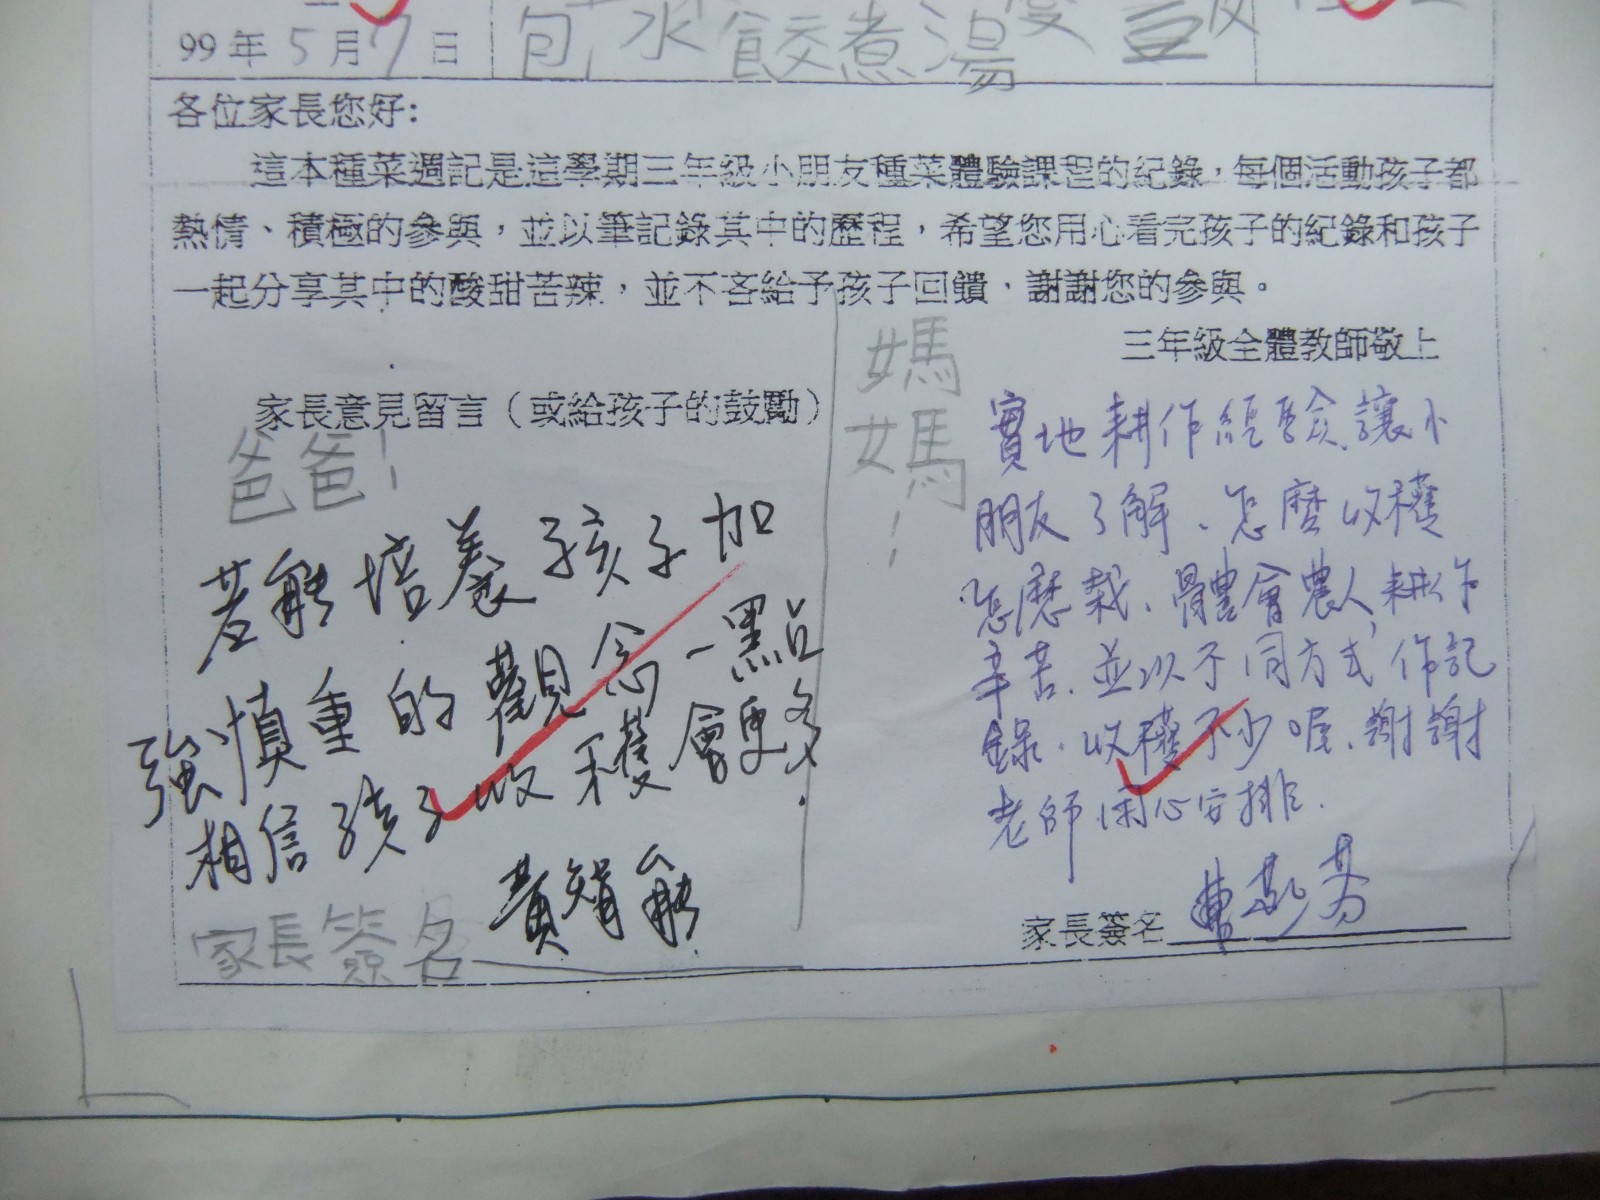 99年5月7日
包水餃煮湯
各位家長您好:
這本種菜週記是這學期三年級小朋友種菜體驗課程的紀錄，每個活動孩子都
熱情、積極的參與，並以筆記錄其中的歷程，希望您用心看完孩子的紀錄和孩子
一起分享其中的酸甜苦辣，並不吝給予孩子回饋，謝謝您的參與。
三年級全體教師敬上
家長意見留言（或給孩子的鼓勵）
爸爸!
若能培養孩子加
強慎重的觀念一點
相信孩子收穫會更多.
家長簽名
媽
媽
!
實地耕作經驗讓小
朋友了解、怎麼收穫
怎麼栽、體會農人耕作
辛苦.並以不同方式作記
錄.收穫不少喔.謝謝
老師用心安排.
家長簽名